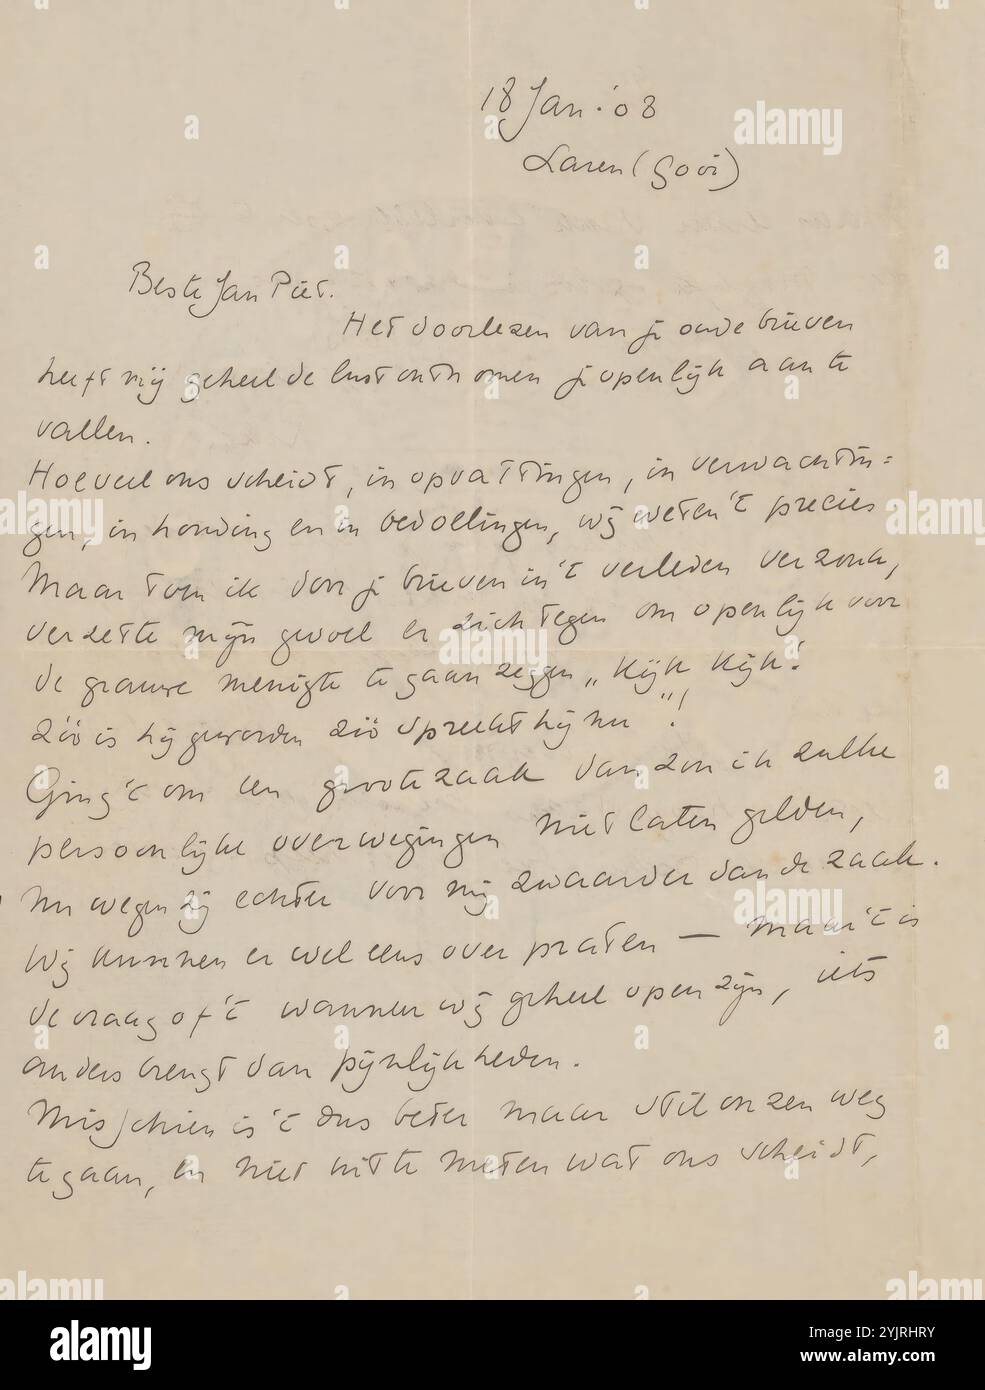 18 Jan. '08
Laren (Gooi)
Beste Jan Piet.
Het doorlezen van je oude brieven
heeft mij geheel de lust ontnomen je openlijk aan te
vallen.
Hoeveel ons scheidt, in opvattingen, in verwachtin=
gen, in houding en in bedoelingen, wij weten 't precies
Maar toen ik door je brieven in 't verleden verzonk,
verzette mijn gevoel er zich tegen om openlijk voor
de grauwe menigte te gaan zeggen „Kijk Kijk!
zóó is hij geworden zóó oprecht hij nu"!
Ging 't om een groote zaak dan zou ik zulke
persoonlijke overwegingen niet laten gelden,
nu wegen zij echter voor mij zwaarder dan de zaak.
Wij kunnen er wel eens over praten — maar 't is
de vraag of 't wanneer wij geheel open zijn, iets
anders brengt dan pijnlijkheden.
Misschien is 't dus beter maar stil onzen weg
te gaan, en niet uit te meten wat ons scheidt,
alamy
Image ID: 2YJRHRY
www.alamy.com